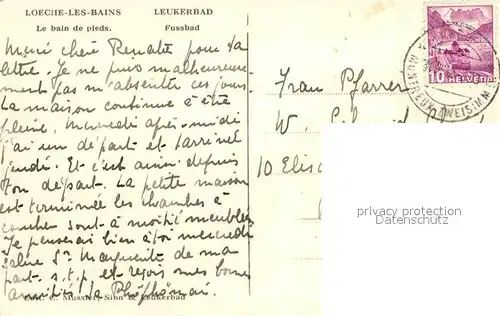 LOECHE-LES-BAINS LEUKERBAD
Le bain de pieds. Fussbad
Merci chère Renate pour ta
lettre. Je ne puis malheureuse-
ment pas m'absenter ces jours.
La maison continue à être
pleine, mercredi après-midi
j'ai un départ et l'arrivée
jeudi. Et c'est ainsi depuis
ton départ. La petite maison
est terminée les chambres à
coucher sont à moitié meublées
Je penserai bien à toi mercredi
salue Sr Marguerite de ma
part s.t.p. et reçois mes bonnes
amitiés, ta
Edit. C. Mussler, Sion & Leukerbad
10 HELVETIA
Frau Pfarrer
W.
10
privacy protection
Datenschutz